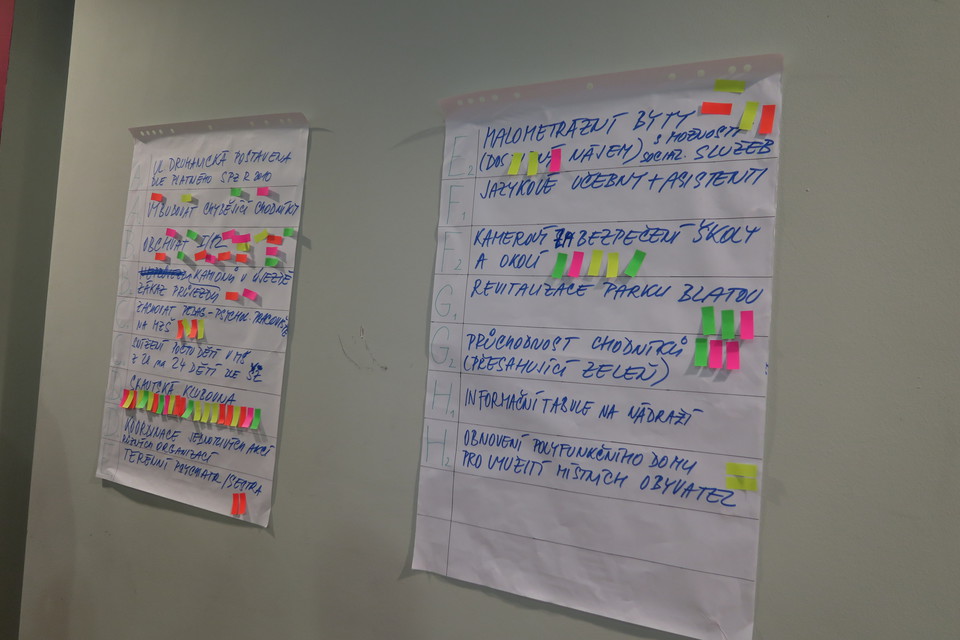 UL DRUHANICKÁ POSTAVENA
DLE PLATNÉHO SPZ R 2010
VYBUDOVAT CHYBĚJÍCÍ CHODNÍKY
OBCHVAT I/12
KAMIONŮ V ÚJEZDĚ
ZÁKAZ PRŮJEZDU
ZACHOVAT PEDAG-PSYCHOL. PRACOVIŠTĚ
NA MZŠ
SNÍŽENÍ POČTU DĚTÍ V MŠ
Z 28 NA 24 DĚTÍ DLE
SKAUTSKÁ KLUBOVNA
KOORDINACE JEDNOTLIVÝCH AKCÍ
RŮZNÝCH ORGANIZACÍ
TERÉNNÍ PSYCHIATR/SESTRA
E2 MALOMETRÁŽNÍ BYTY
S MOŽNOSTÍ
NÁJEM) SOCIAL. SLUŽEB
F1 JAZYKOVÉ UČEBNY + ASISTENTI
F2 KAMEROVÉ ZABEZPEČENÍ ŠKOLY
A OKOLÍ
G1 REVITALIZACE PARKU BLATOV
G2 PRŮCHODNOST CHODNÍKŮ
(PŘESAHUJÍCÍ ZELEŇ)
H1 INFORMAČNÍ TABULE NA NÁDRAŽÍ
H2 OBNOVENÍ POLYFUNKČNÍHO DOMU
PRO VYUŽITÍ MÍSTNÍCH OBYVATEL